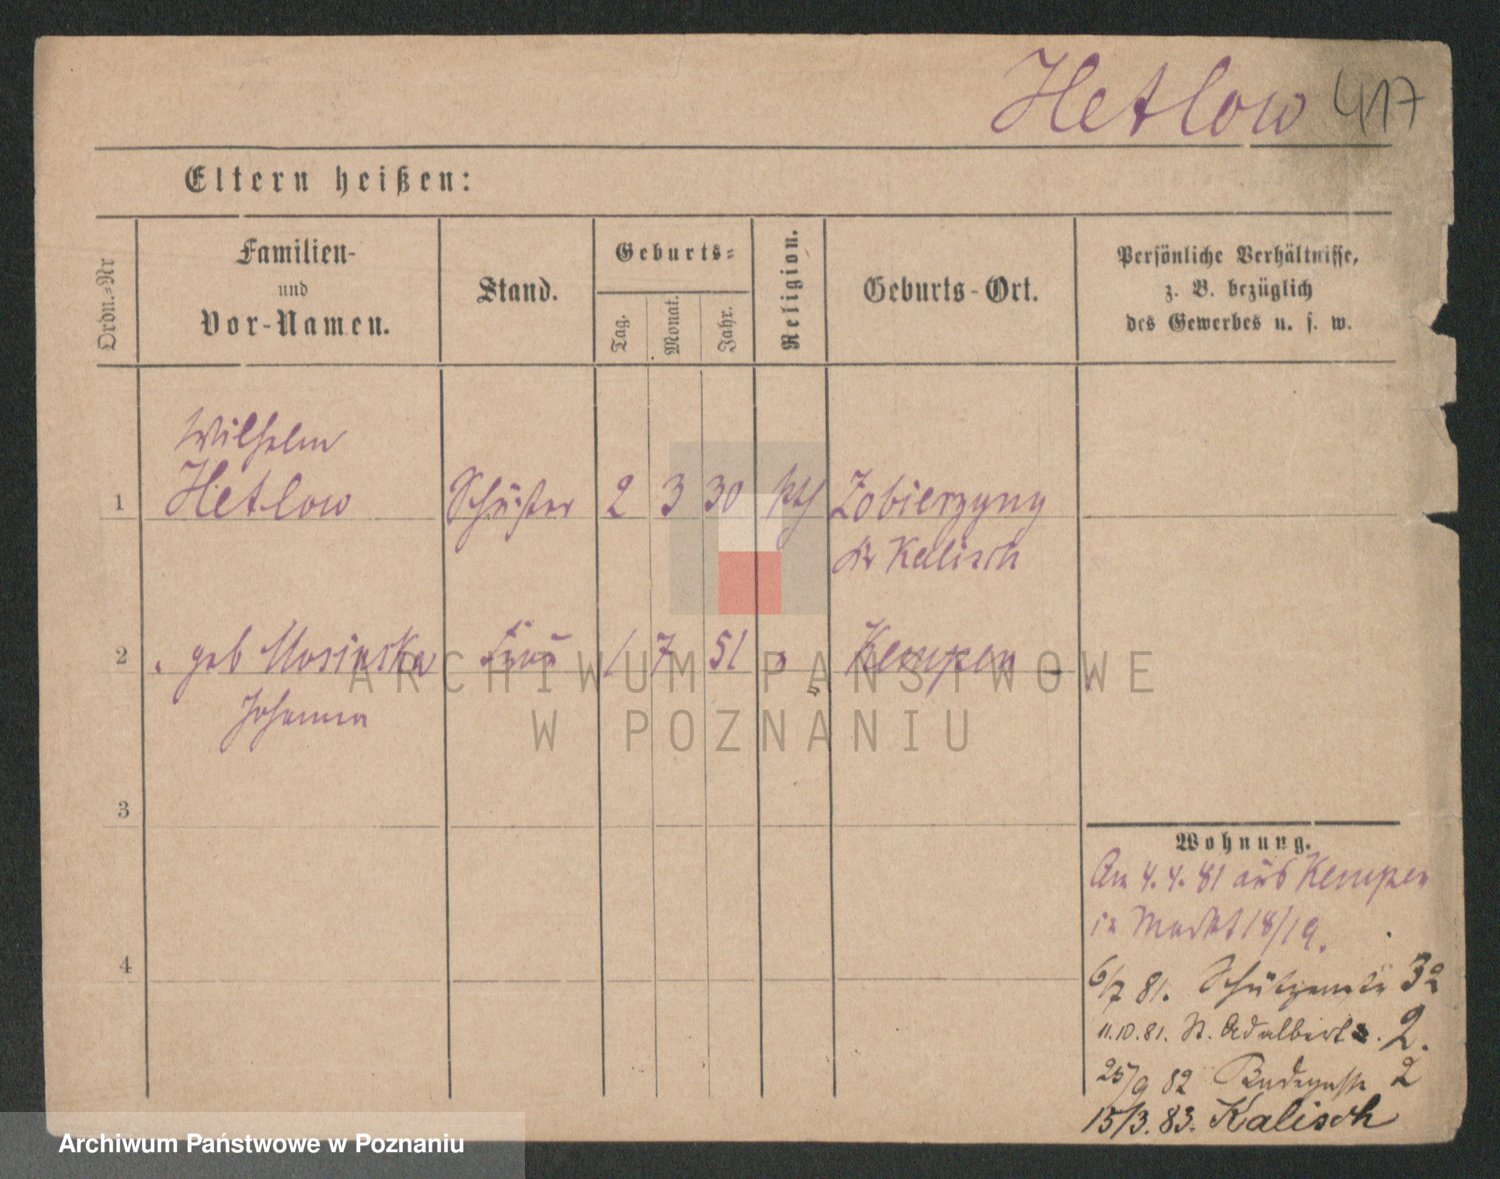 Hetlow 417
Eltern heißen:
Ordn.-Nr
Familien-
und
Vor-Namen.
Stand.
Geburts-
Tag.
Monat.
Jahr.
Religion.
Geburts-Ort.
Persönliche Verhältnisse,
z. B. bezüglich
des Gewerbes u. s. w.
Wilhelm
1 Hetlow Schuster 2 3 30 Zobierzyny
Kalisch
2 geb Mosinska Frau 1 7 51 Kempen
Johanna
3
4
Wohnung.
Am 4.4.81 aus Kempen
in Markt 18/19.
6/7 81. 32
11.10.81. St. Adalbert 2.
25/9 82 Badegasse 2
15/3. 83. Kalisch
ARCHIWUM PAŃSTWOWE
W POZNANIU
Archiwum Państwowe w Poznaniu